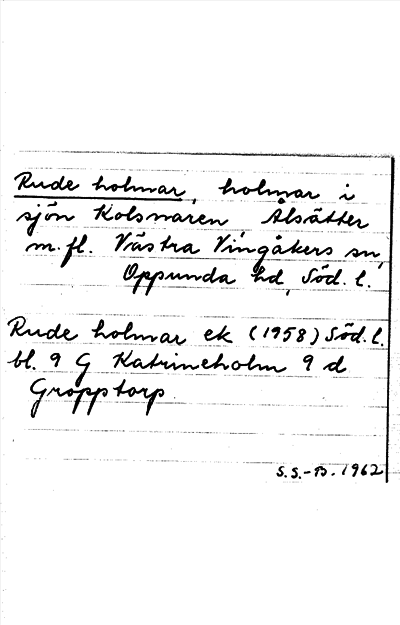 Rude holmar, holmar i
sjön Kolsnaren, Ålsätter
m. fl. Västra Vingåkers sn,
Oppunda hd, Söd. l.
Rude holmar ek (1958) Söd. l.
bl. 9 G Katrineholm 9 d
Gropptorp
S.S.-B. 1962